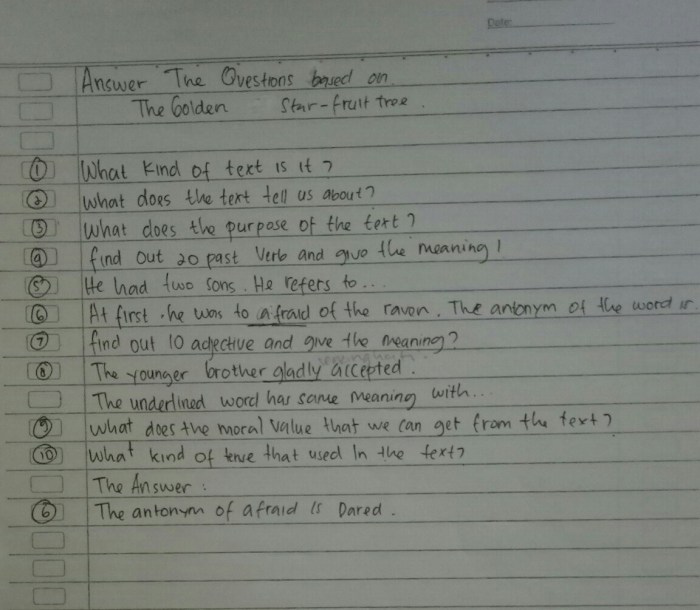 Date:
Answer The Questions based on
The Golden Star-fruit tree.
① What kind of text is it?
② what does the text tell us about?
③ What does the purpose of the text?
④ find out 20 past Verb and give the meaning!
⑤ He had two sons. He refers to...
⑥ At first. he was to afraid of the raven. The antonym of the word is
⑦ find out 10 adjective and give the meaning?
⑧ The younger brother gladly accepted.
The underlined word has same meaning with...
⑨ what does the moral value that we can get from the text?
⑩ what kind of tense that used In the text?
The Answer :
⑥ The antonym of afraid is Dared.